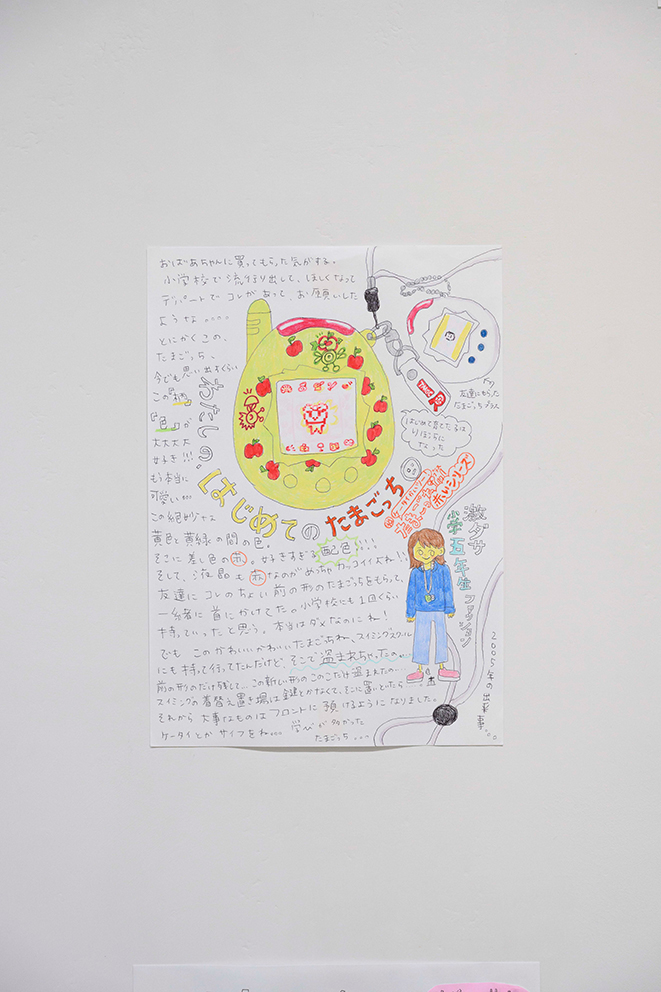 おばあちゃんに買ってもらった気がする。
小学校で流行り出して、ほしくなって
デパートでコレがあって、お願いした
ような。。。。
とにかくこの、
たまごっち、
今でも思い出すくらい
この『柄』
『色』が
大大大大
好き!!!
もう本当に
可愛い。。。
この絶妙な
黄色と黄緑の間の色。
そこに差し色の赤。好きすぎる配色!!!!
そして、液晶も赤なのがめっちゃカッコイイよね!!
友達にコレのちょい前の形のたまごっちをもらって、
一緒に首にかけてたの小学校にも1回くらい
持っていったと思う。本当はダメなのにね!
でも このかわいいかわいいたまごっちね、スイミングスクール
にも持って行ってたんだけど、そこで盗まれちゃったの。。
前の形のだけ残して、この新しい形のこのこだけ盗まれたの…
スイミングの着替え置き場は鍵とかなくて、そこに置いといたら
それから大事なものはフロントに預けるようになりました。
ケータイとかサイフをね。。。
学びで多かった
たまごっち。。。
わたしの、はじめてのたまごっち
友達にもらった
たまごっちプラス
はじめて育てたコは
りほこらに
なった
赤いシリーズ
激ダサ
小学五年生
ファッション
2005年の出来事。。。